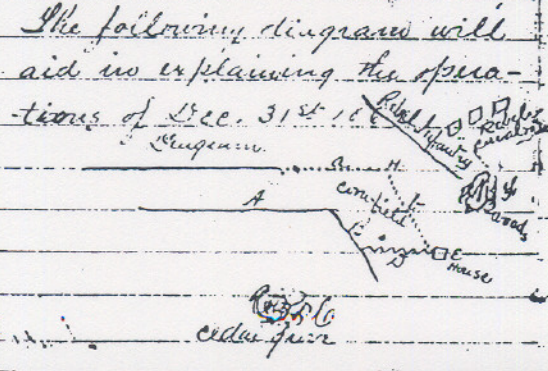 The following diagram will
aid in explaining the opera-
tions of Dec. 31st 186
Diagram
Rebel Infantry
Rebel
Cavalry
B
H
cornfield
A
L
Woods
C
D
E
House
cedar